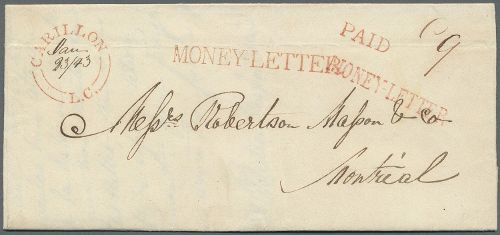 CARILLON
Jan
23/43
L.C.
MONEY-LETTER
PAID
MONEY-LETTER
9
Messrs Robertson Masson & Co
Montréal